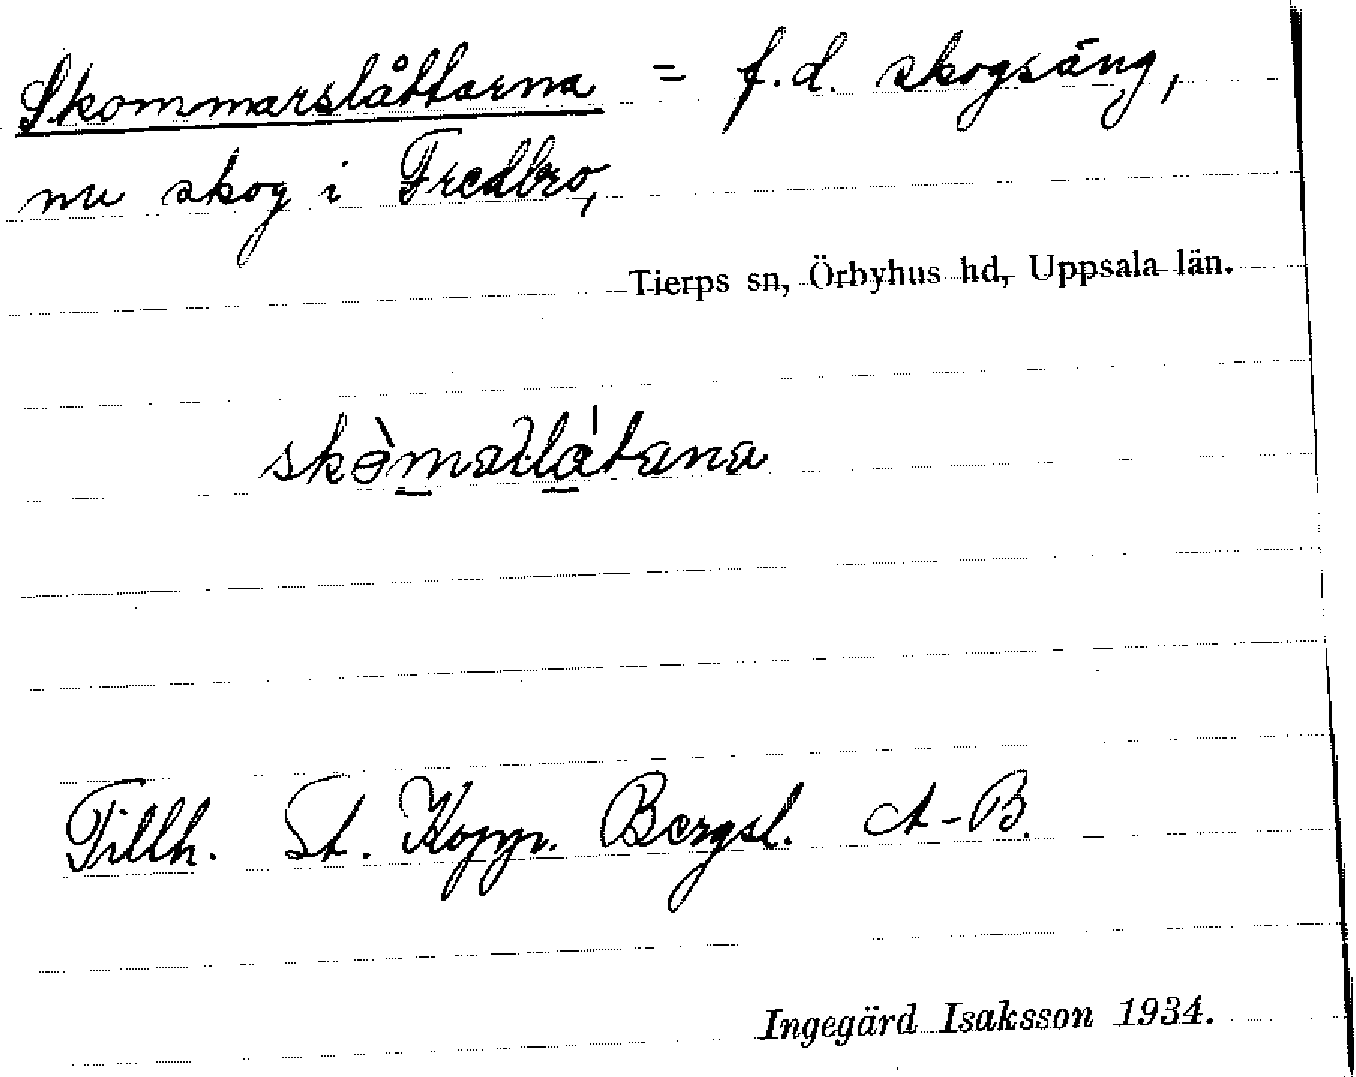 Skommarslåttarna = f.d. skogsäng,
nu skog i Fredbro,
Tierps sn, Örbyhus hd, Uppsala län.
Tillh. St. Kopp. Bergsl. A-B.
Ingegärd Isaksson 1934.